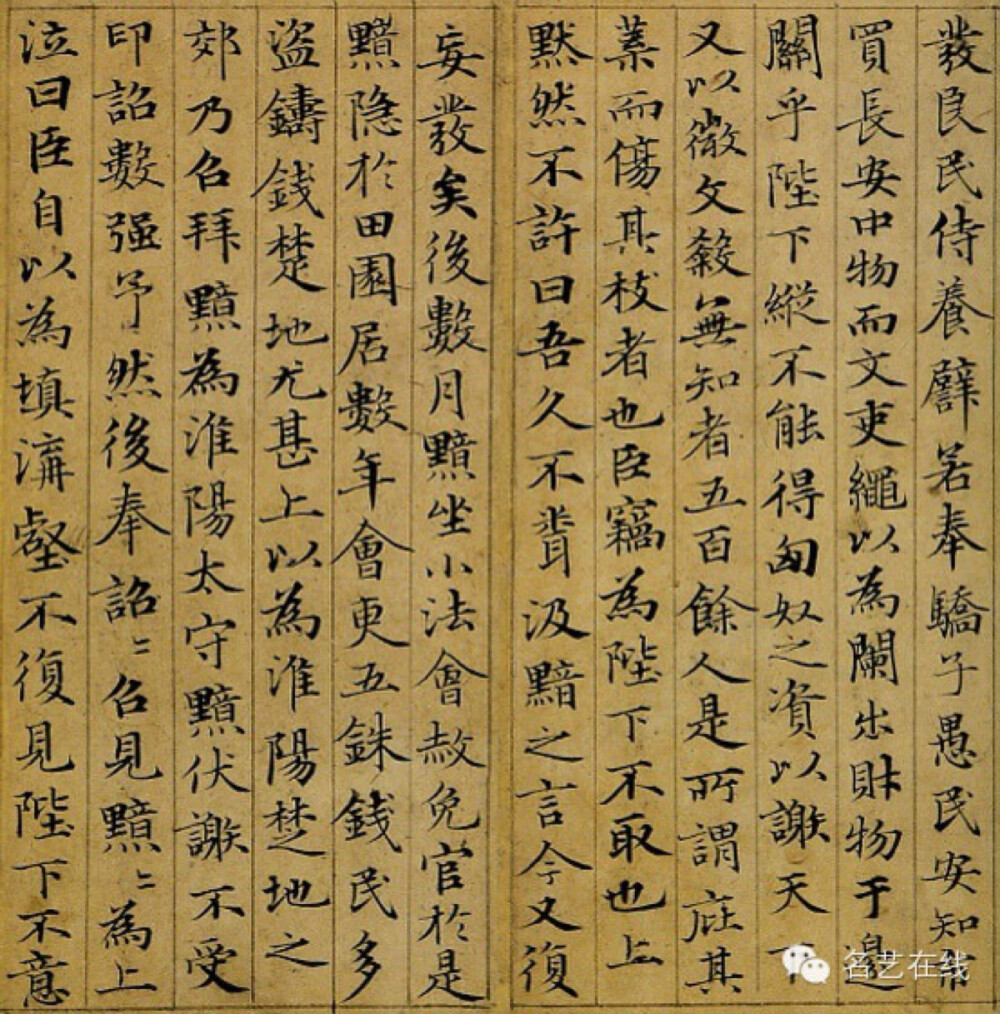 發良民侍養譬若奉驕子愚民安知市
買長安中物而文吏繩以為闌出財物于邊
關乎陛下縱不能得匈奴之資以謝天下
又以微文殺無知者五百餘人是所謂庇其
葉而傷其枝者也臣竊為陛下不取也上
默然不許曰吾久不聞汲黯之言今又復
妄發矣後數月黯坐小法會赦免官於是
黯隱於田園居數年會更五銖錢民多
盜鑄錢楚地尤甚上以為淮陽楚地之
郊乃召拜黯為淮陽太守黯伏謝不受
印詔數强予然後奉詔〻召見黯〻為上
泣曰臣自以為填溝壑不復見陛下不意
名艺在线